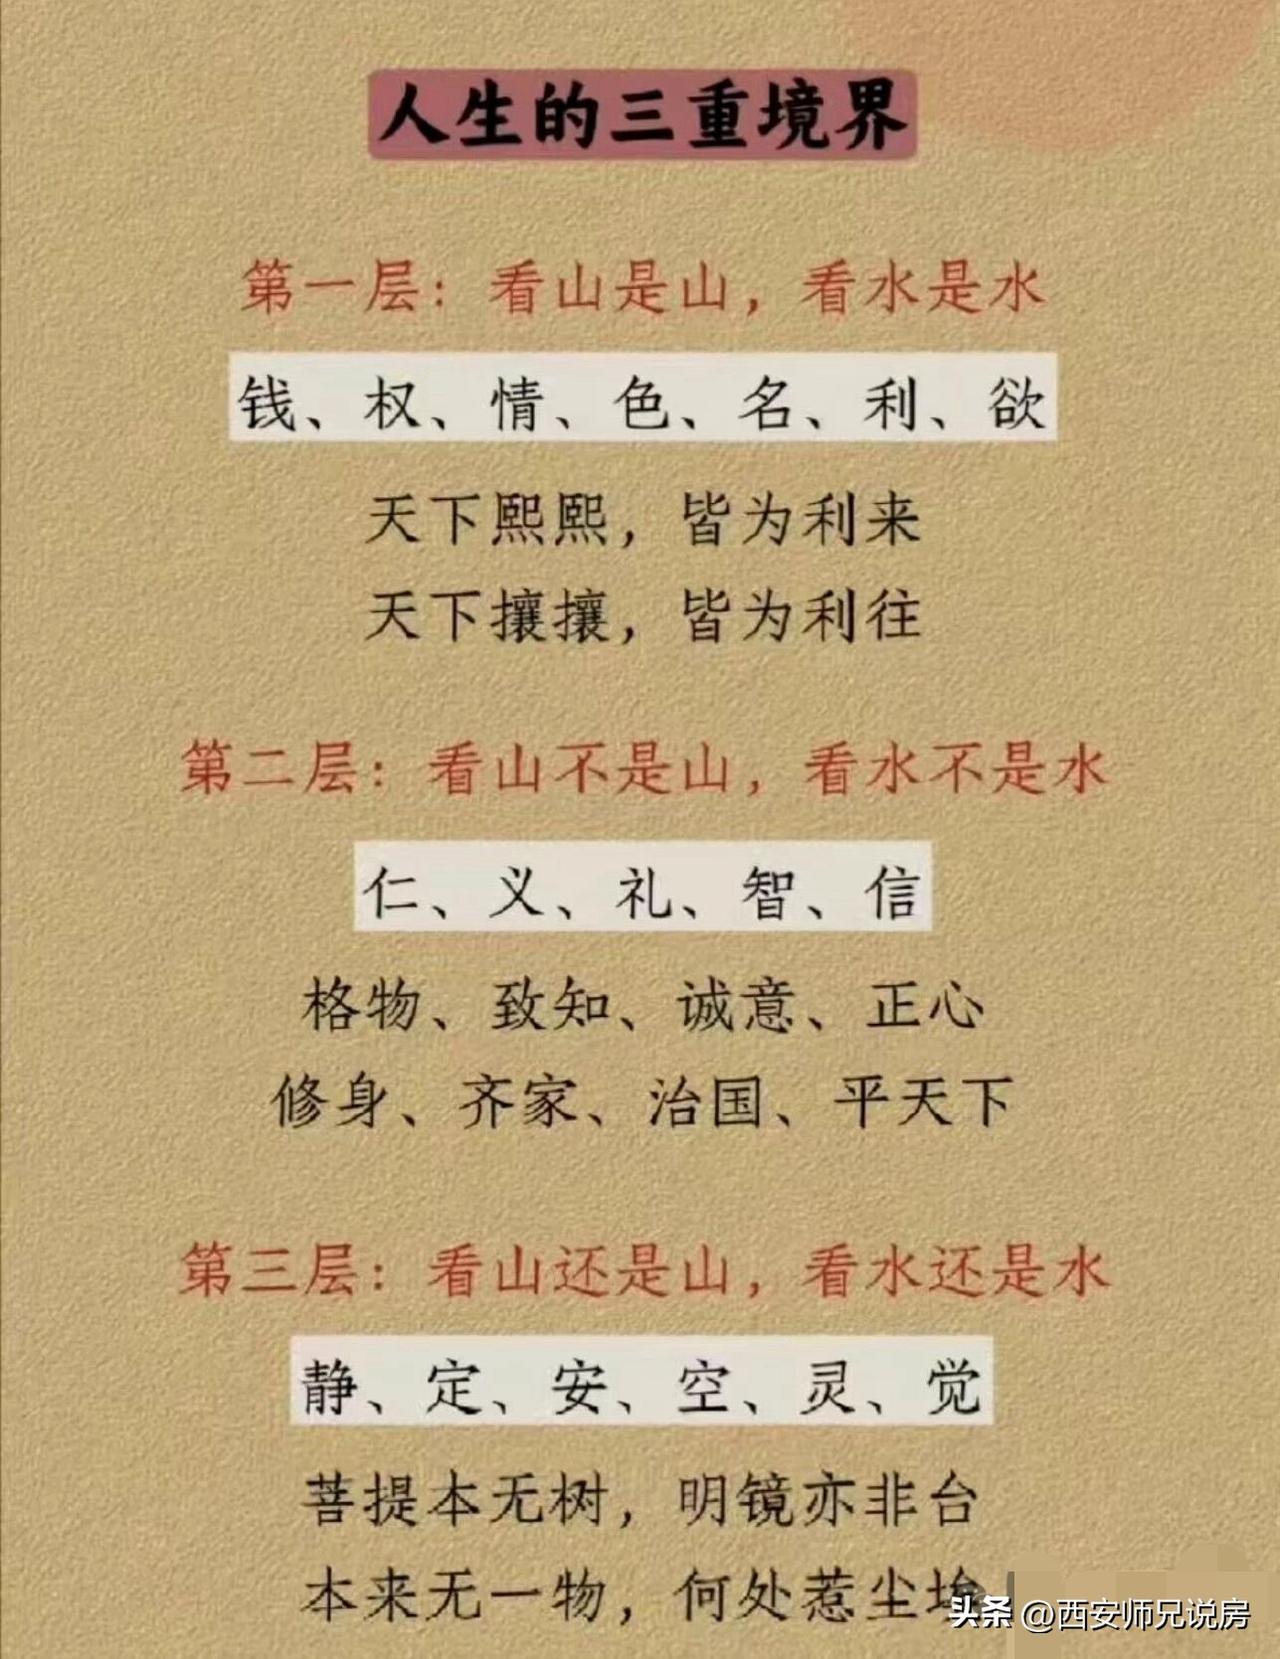 人生的三重境界
第一层：看山是山，看水是水
钱、权、情、色、名、利、欲
天下熙熙，皆为利来
天下攘攘，皆为利往
第二层：看山不是山，看水不是水
仁、义、礼、智、信
格物、致知、诚意、正心
修身、齐家、治国、平天下
第三层：看山还是山，看水还是水
静、定、安、空、灵、觉
菩提本无树，明镜亦非台
本来无一物，何处惹尘埃
头条 @西安师兄说房